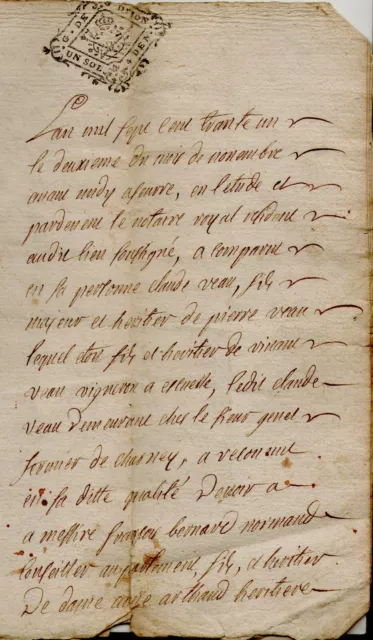 G · DE · DIJON
UN SOL · DEN
L'an mil sept cent trante un
le deuxieme du mois de novembre
avant midy a seurre, en l'etude et
pardevant le notaire royal residant
audit lieu soussigné, a comparut
en sa personne claude veau, fils
majeur et heritier de pierre veau
lequel etoit fils et heritier de vincent
veau vigneron a , ledit claude
veau demeurant ches le sieur genet
fermier de charney, a
en sa ditte qualité devoir a
a messire françois bernard normand
conseiller au parlement, fils, et heritier
De dame anne arthaud heritiere